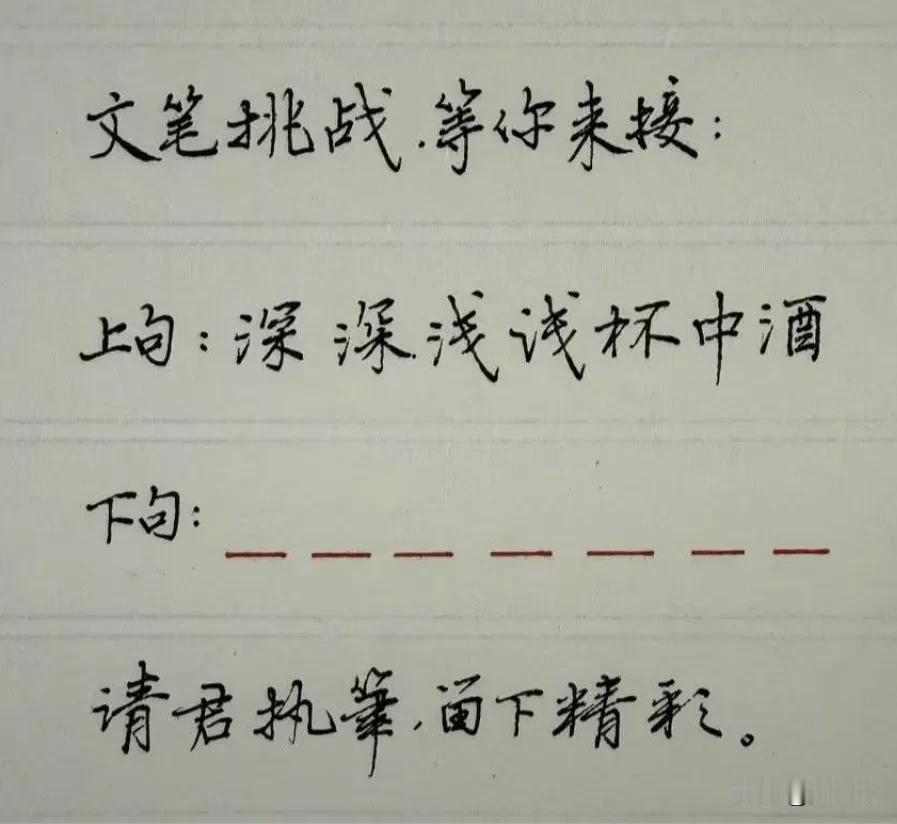 文笔挑战.等你来接:
上句:深深.浅浅杯中酒
下句:
请君执筆,留下精彩。